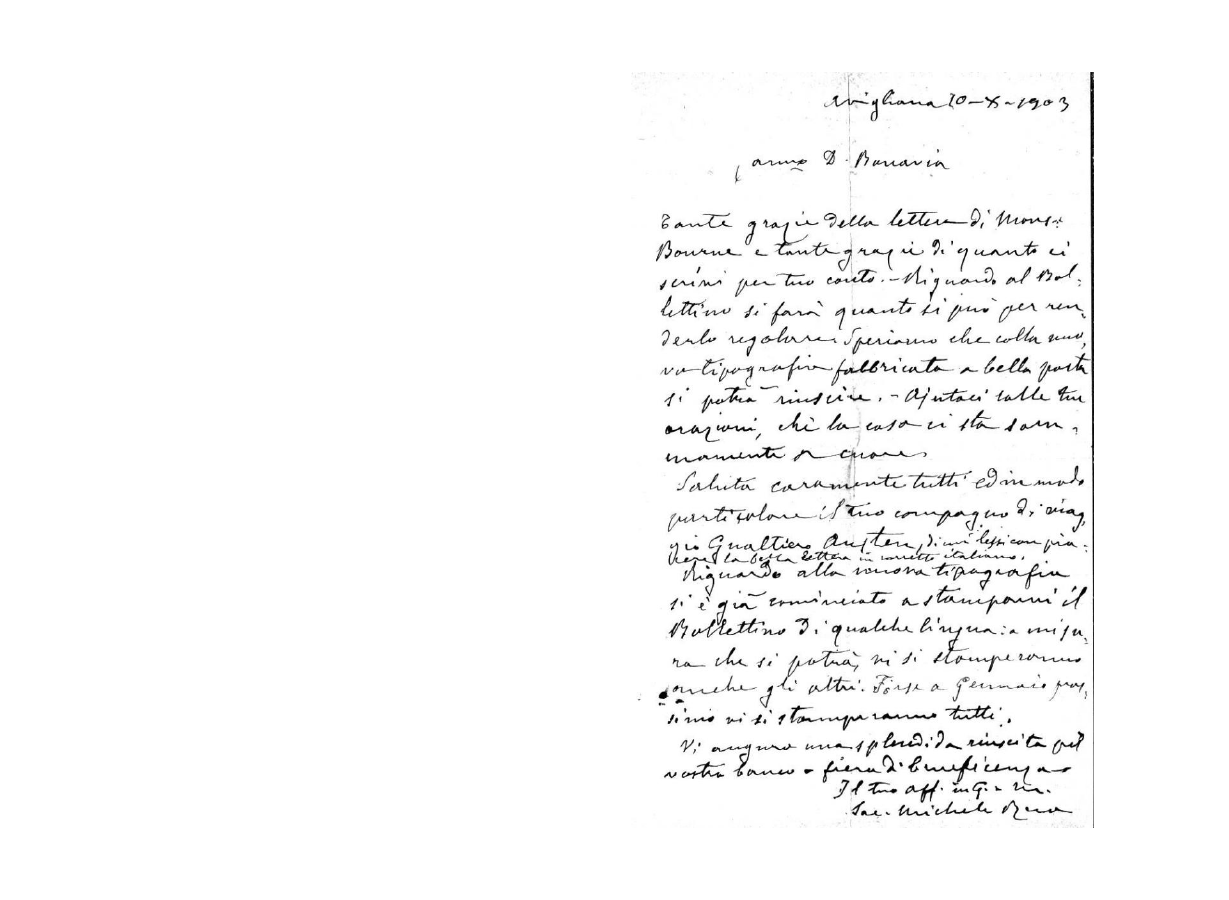 Avigliana 20-X-1903
Carmo D. Bonavia
Tante grazie della lettera di Mons.r
Bourne e tante grazie di quanto ci
scrivi per tuo conto. - Riguardo al Bol-
lettino si farà quanto si può per ren-
derlo regolare. Speriamo che colla nuo-
va tipografia fabbricata a bella posta
si potrà riuscire. - Ajutaci colle tue
orazioni, chè la cosa ci sta som-
mamente a cuore.
Saluta caramente tutti ed in modo
particolare il tuo compagno di viag-
gio Gualtiero Austen, di cui lessi con pia-
cere la bella lettera in corretto italiano.
Riguardo alla nuova tipografia
si è già cominciato a stamparvi il
Bollettino di qualche lingua: a misu-
ra che si potrà, vi si stamperanno
anche gli altri. Forse a Gennaio pros-
simo vi si stamperanno tutti.
Vi auguro una splendida riuscita pel
vostro banco o fiera di beneficenza
Il tuo aff. in G. e M.
Sac. Michele Rua